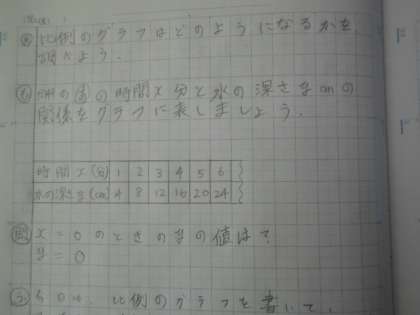 比例のグラフはどのようになるかを
調べよう。
の時間x分と水の深さycmの
関係をグラフに表しましょう。
時間x(分) 1 2 3 4 5 6
水の深さy(cm) 4 8 12 16 20 24
問 x=0のときのyの値は?
y=0
比例のグラフを書いて、